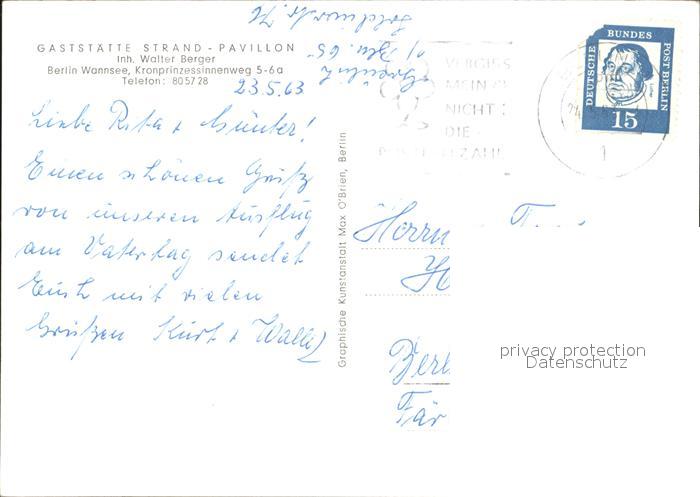 GASTSTÄTTE STRAND - PAVILLON
Inh. Walter Berger
Berlin Wannsee, Kronprinzessinnenweg 5-6a
Telefon: 805728
23.5.63
Liebe Rita + Günter!
Einen schönen Gruß
von unseren Ausflug
am Vatertag sendet
Euch mit vielen
Grüßen Kurt + Walli
Graphische Kunstanstalt Max O'Brien, Berlin
VERGISS
MEIN
NICHT:
DIE
DEUTSCHE BUNDES POST BERLIN
15
Herrn
privacy protection
Datenschutz